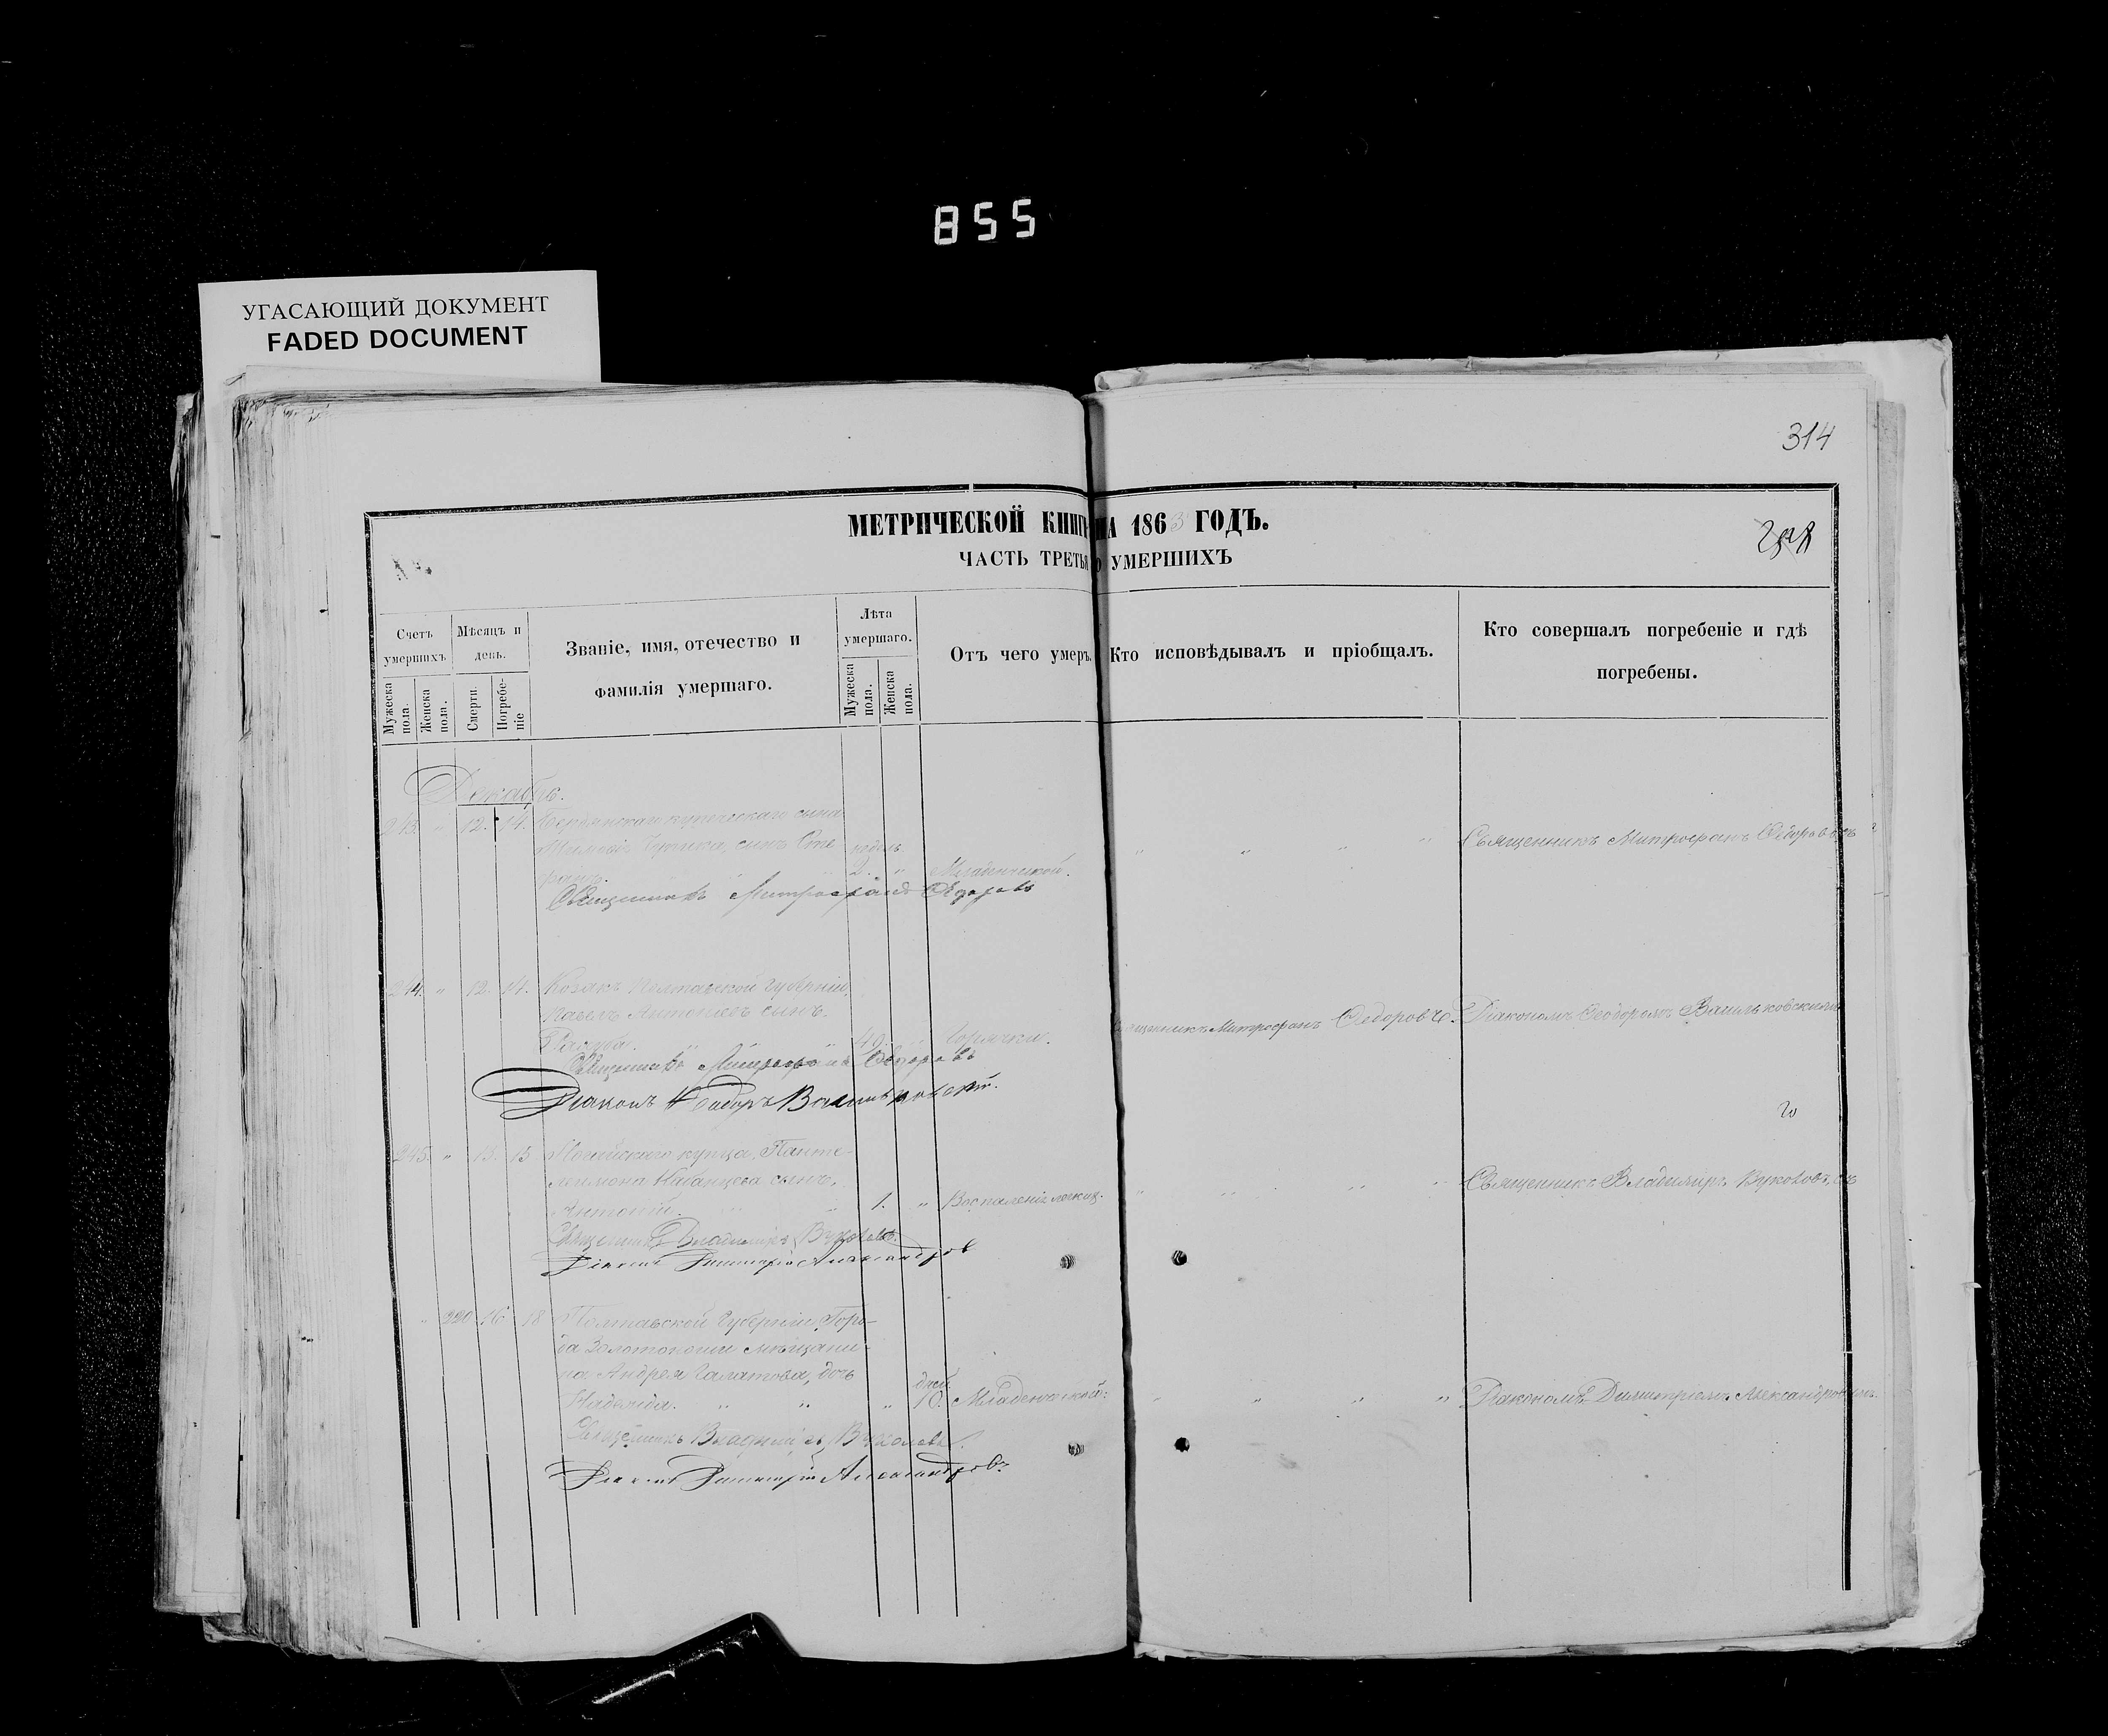 855
УГАСАЮЩИЙ ДОКУМЕНТ
FADED DOCUMENT
314
МЕТРИЧЕСКОЙ КНИГ НА 1863 ГОДЪ.
ЧАСТЬ ТРЕТЬЯ О УМЕРШИХЪ
Счетъ умершихъ
Мужеска пола.
Женска пола.
Мѣсяцъ и день.
Смерти.
Погребеніе
Званіе, имя, отечество и фамилія умершаго.
Лѣта умершаго.
Мужеска пола.
Женска пола.
Отъ чего умеръ.
Кто исповѣдывалъ и пріобщалъ.
Кто совершалъ погребеніе и гдѣ погребены.
Декабрь.
243. " 12. 14. Бердянскаго купеческаго сына
сынъ Сте недѣль
фанъ. 2. " Младенческой.
Священникъ Митрофанъ Ѳедоровъ
Священникъ Митрофанъ Ѳедоровъ
244. " 12. 14. Козакъ Полтавской Губерніи,
Павелъ Антоніевъ сынъ,
49. " Горячки.
Священникъ Митрофанъ Ѳедоровъ.
Діакономъ Ѳеодоромъ Васильковскимъ
Священникъ Митрофанъ Ѳедоровъ
Діаконъ Ѳеодоръ Васильковскій.
245. " 13. 15 Ногайскаго купца Панте-
лимона сынъ,
Антоній. 1. " Воспаленія легкихъ.
Священникъ Владимиръ Вуколовъ
Священникъ Владимиръ Вуколовъ.
Діаконъ Димитрій Александровъ
" 220 16 18 Полтавской Губерніи Горо-
да Золотоноши мѣщани-
на Андрея Галатова, дочь
Надежда. " дней 10. Младенческой.
Діакономъ Димитріемъ Александровымъ.
Священникъ Владимиръ Вуколовъ.
Діаконъ Димитрій Александровъ